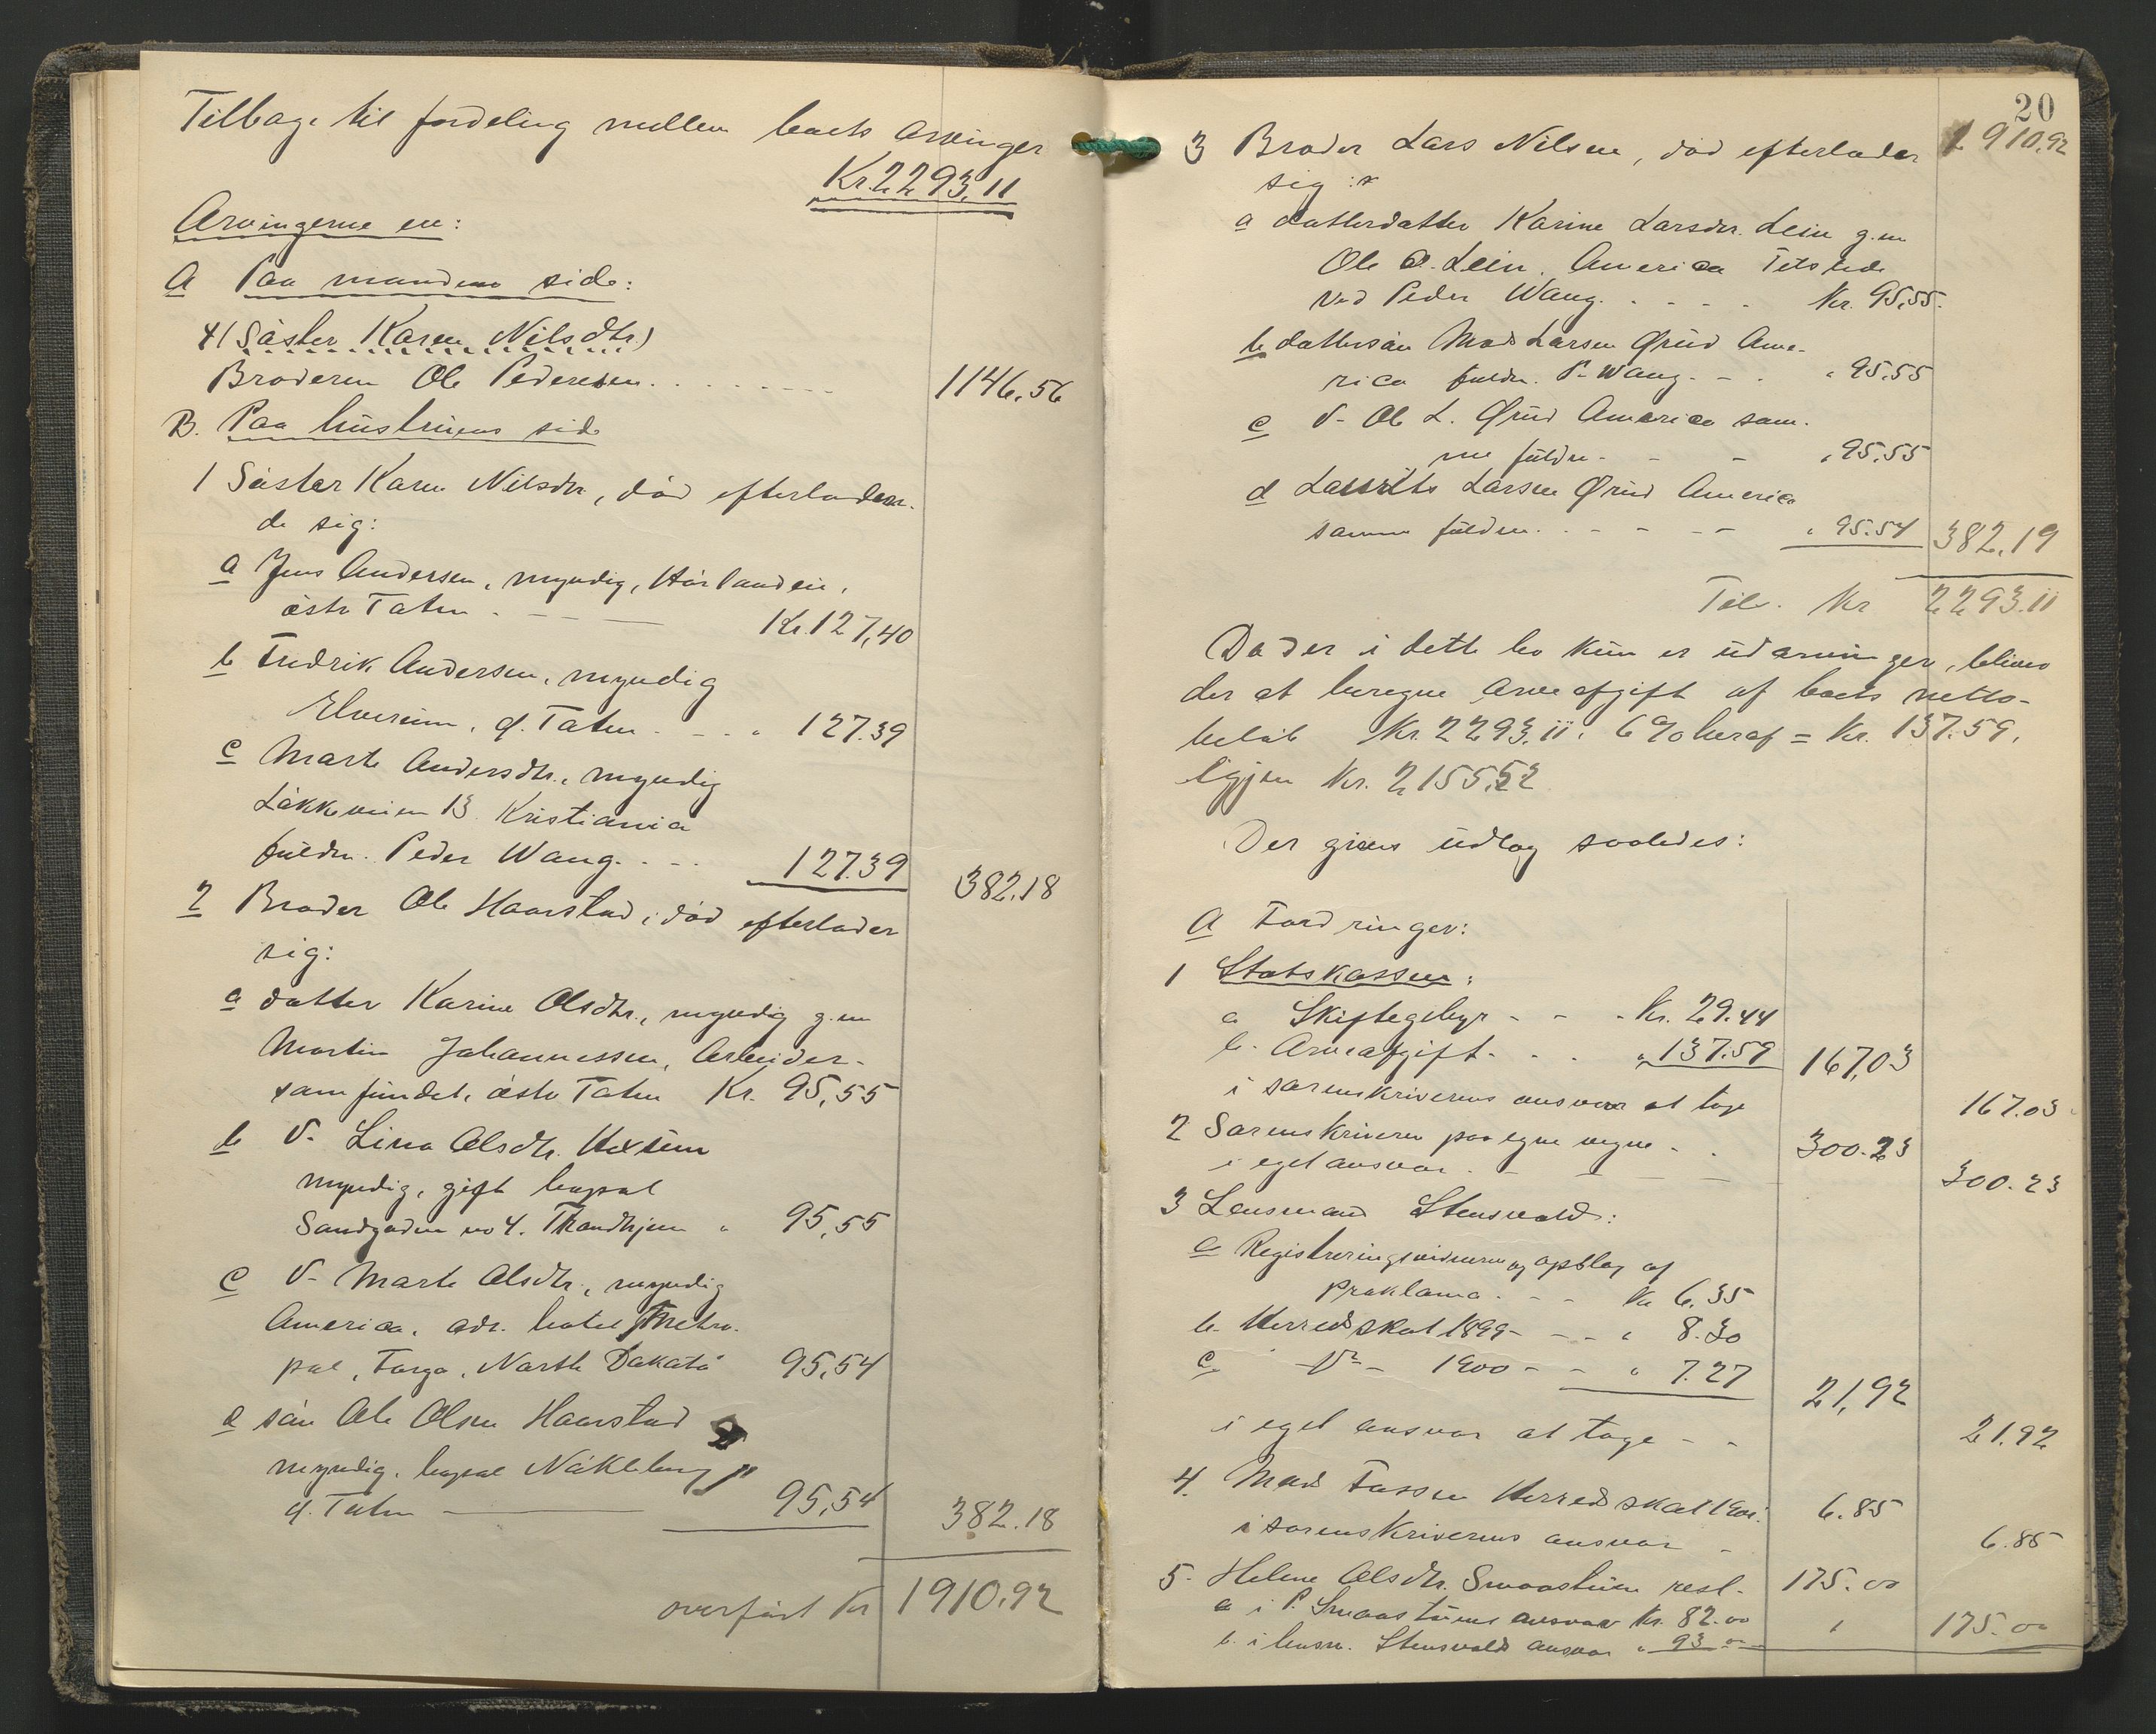 Tilbage til fordeling mellem boets arvinger
Kr. 2293,11
Arvingerne er:
A Paa mandens side:
(Søster Karen Nilsdtr)
Broderen Ole Pedersen 1146.56
B. Paa hustruens side
1 Søster Karen Nilsdtr, død efterladen-
de sig:
a Jens Andersen, myndig,
østr Toten Kr. 127,40
b Fredrik Andersen, myndig
Elverum, Ø. Toten " 127.39
c Marte Andersdtr., myndig
Løkkeveien 13 Kristiania
fuldm. Peder Wang. 127.39 382.18
2 Broder Ole Haarstad, død efterlader
sig:
a datter Karine Olsdtr., myndig g.m
Martin Johannessen, Arbeider-
samfundet, østr Toten Kr. 95,55
b D- Lina Olsdtr. Hexum
myndig, gift bopæl
Sandgaden no 4. Throndhjem " 95,55
c D- Marte Olsdtr., myndig
America, adr. hotel Metro-
pol, Fargo, North Dakota 95,54
d søn Ole Olsen Haarstad
myndig, bopæl Nøkleberg
Ø. Toten 95,54 382.18
overført Kr 1910.92
20
3 Broder Lars Nilsen, død efterlader 1910.92
sig:
a datterdatter Karine Larsdtr. Lein g.m
Ole O. Lein, America Tilstede
ved Peder Wang. Kr. 95,55.
b dattersøn Mads Larsen Grud Ame-
rica fuldm. P. Wang. " 95,55
c D- Ole L. Grud America sam-
me fuldm. " 95.55
d Laurits Larsen Grud America
samme fuldm. " 95.54 382,19
Tils. Kr 2293.11
Da der i dette bo kun er udarvinger, bliver
der at beregne Arveafgift af boets netto-
beløb Kr. 2293.11: 6 % heraf = Kr. 137.59,
igjen Kr. 2155,52
Der gives udlæg saaledes:
A Fordringer:
1 Statskassen:
a Skiftegebyr Kr. 29.44
b. Arveafgift " 137.59 167,03
i sorenskriverens ansvar at tage 167.03
2 Sorenskriveren paa egne vegne 300.23
i eget ansvar 300.23
3 Lensmand Stensvold:
a Registreringsvidnerne og opslag af
proklama Kr 6.35
b. Herredsskat 1899 " 8.30
c. D- 1900 " 7.27 21,92
i eget ansvar at tage 21.92
4. Mads Fossen Herredsskat 1901. 6.85
i sorenskriverens ansvar 6.85
5. Helene Olsdtr. Smaastuen rest. 175.00
a i P. Smaastuens ansvar Kr. 82.00
b. i lensm. Stensvolds ansvar " 93.00 175.00